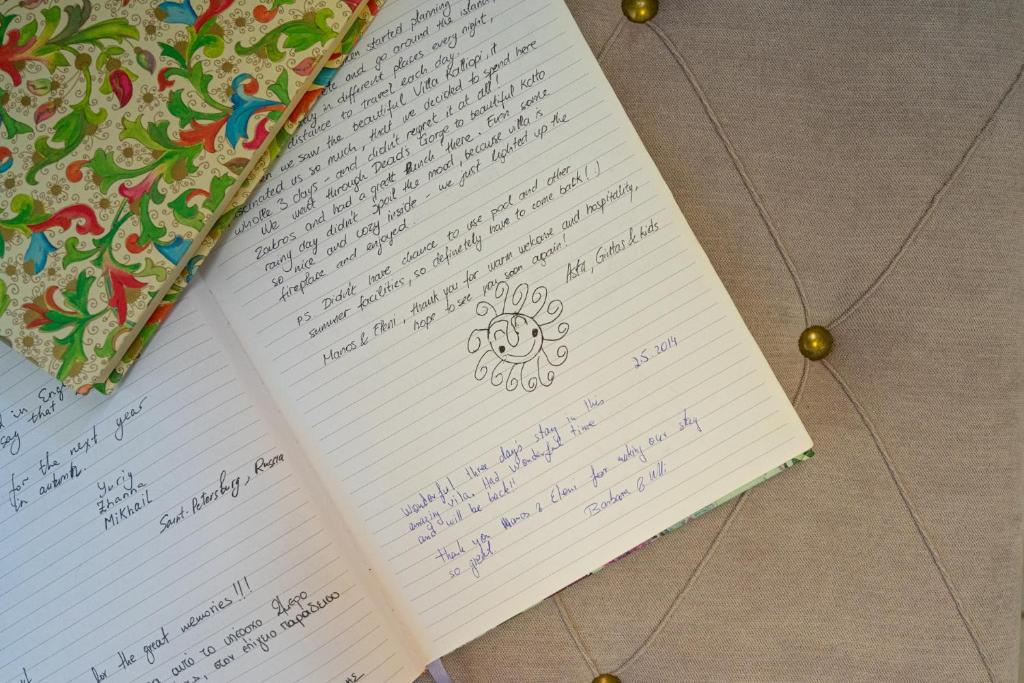 d in Eng
say that
for the next year
in autumn.
Yuriy
Zhanna
Mikhail
Saint-Petersburg, Russia
for the great memories!!!
αυτό το υπέροχο
στον επίγειο παράδεισο
ης
en started planning
etc and go around the island,
y in different places every night,
distance to travel each day.
n we saw the beautiful Villa Kalliopi, it
scinated us so much, that we decided to spend here
whole 3 days - and didn't regret it at all!
We went through Dead's Gorge to beautiful Kato
Zakros and had a great lunch there. Even some
rainy day didn't spoil the mood, because villa is
so nice and cozy inside - we just lighted up the
fireplace and enjoyed.
PS Didn't have chance to use pool and other
summer facilities, so definetely have to come back! :)
Manos & Eleni, thank you for warm welcome and hospitality,
hope to see you soon again!
Asta, Gintas & kids
2.5.2014
Wonderful three day's stay in this
amazing villa. Had wonderful time
and will be back!!
Thank you Manos & Eleni for making our stay
so great.
Barbara & Ulli